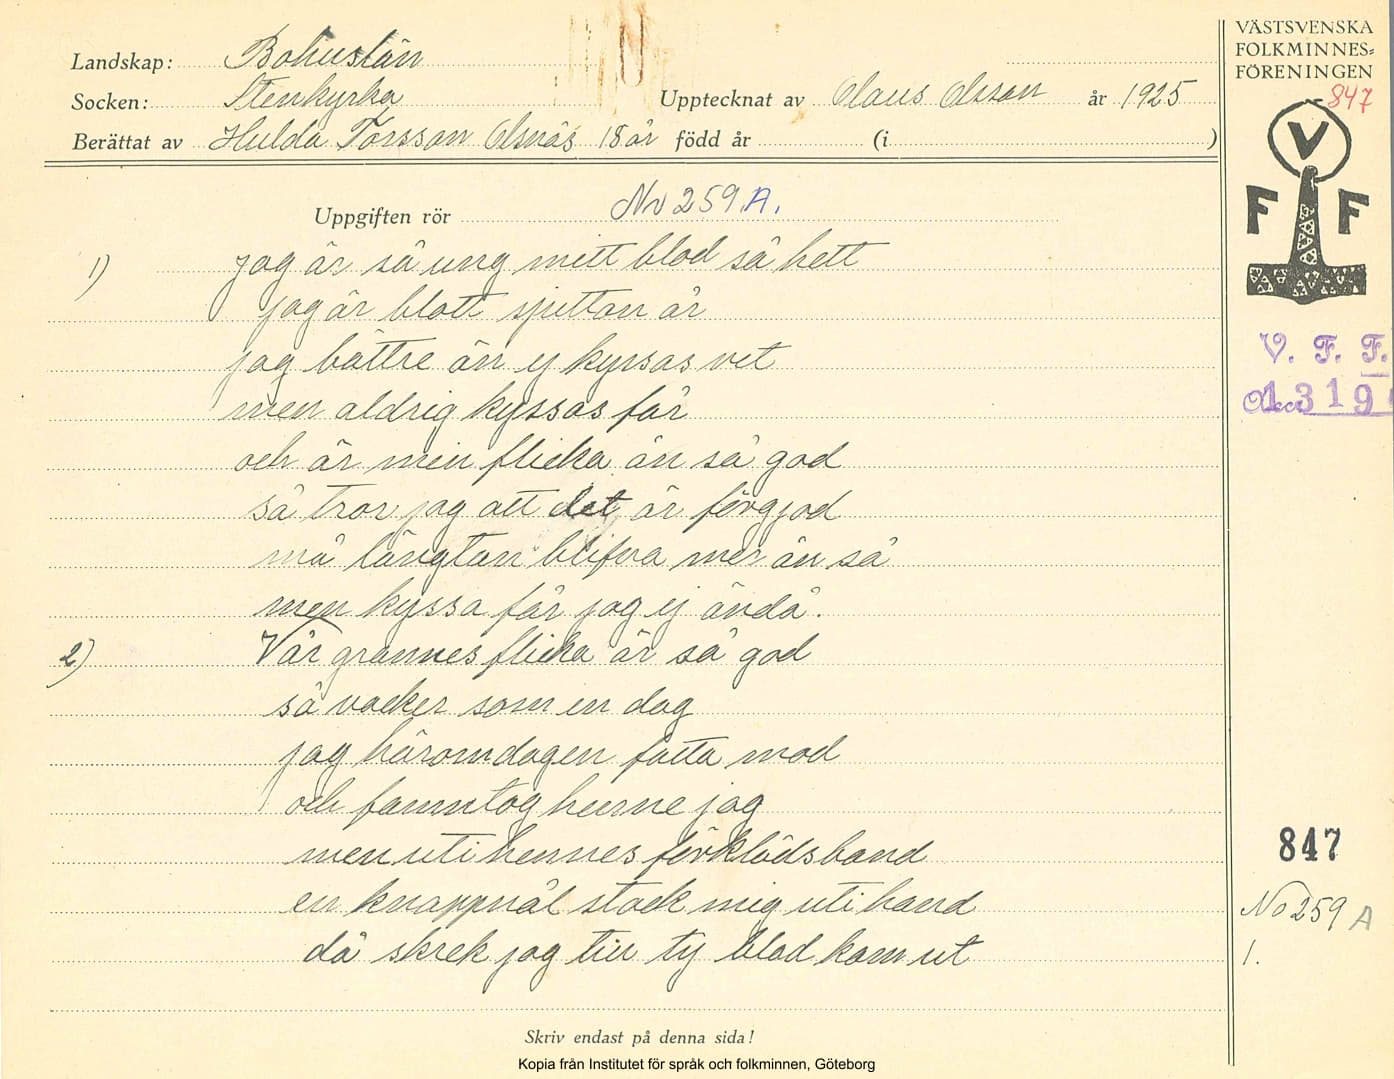 Landskap: Bohuslän
Socken: Stenkyrka
Upptecknat av Olaus Olsson år 1925
Berättat av Hulda Torsson Olsnäs 18 år född år (i )
Uppgiften rör No 259.A.
1) jag är så ung mitt blod så hett
jag är blott sjutton år
jag bättre än ej kyssas vet
men aldrig kyssas får
och är min flicka än så god
så tror jag att det är förgjod
må längtan blifva mer än så
men kyssa får jag ej ändå.
2) Vår grannes flicka är så god
så vacker som en dag
jag häromdagen fatta mod
och famntog henne jag
men uti hennes förklädsband
en knappnål stack mig uti hand
då skrek jag ty blod kom ut
Skriv endast på denna sida!
Kopia från Institutet för språk och folkminnen, Göteborg
VÄSTSVENSKA
FOLKMINNES=
FÖRENINGEN
847
V
F F
V. F. F.
Acc. 1319
847
No 259 A
1.